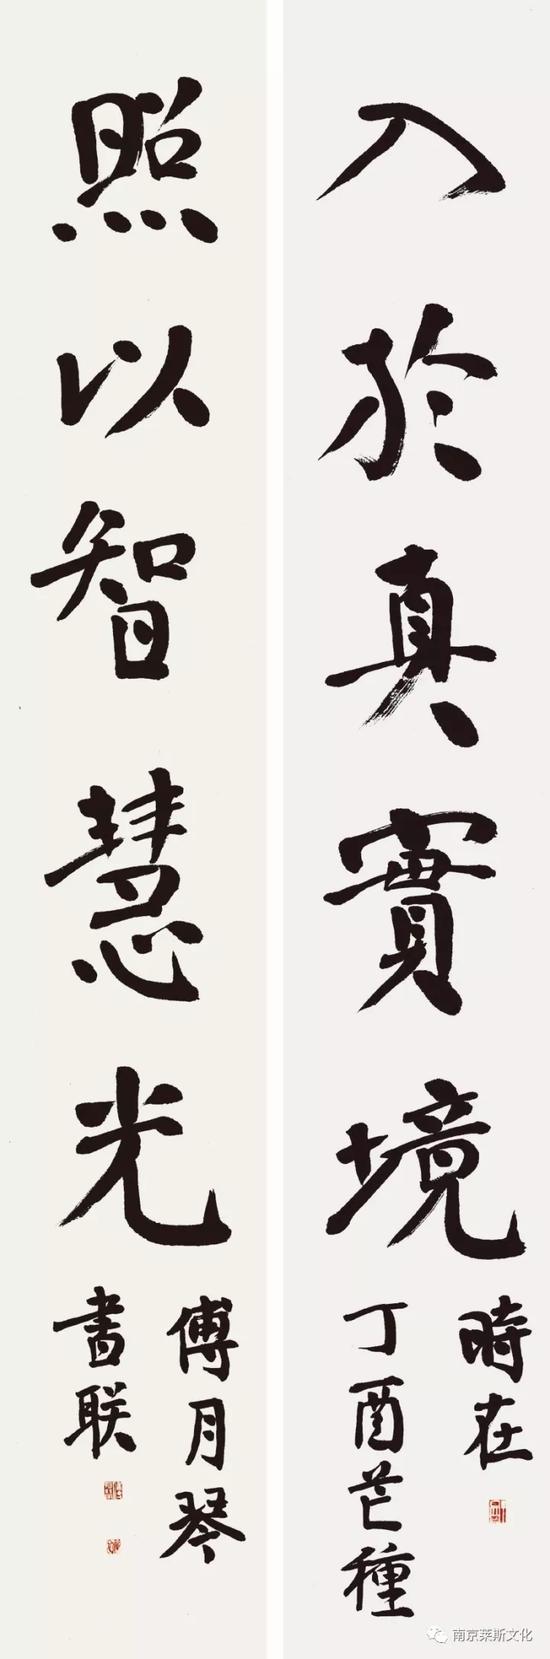 入於真實境
時在
丁酉芒種
照以智慧光
傅月琴
書联
南京莱斯文化